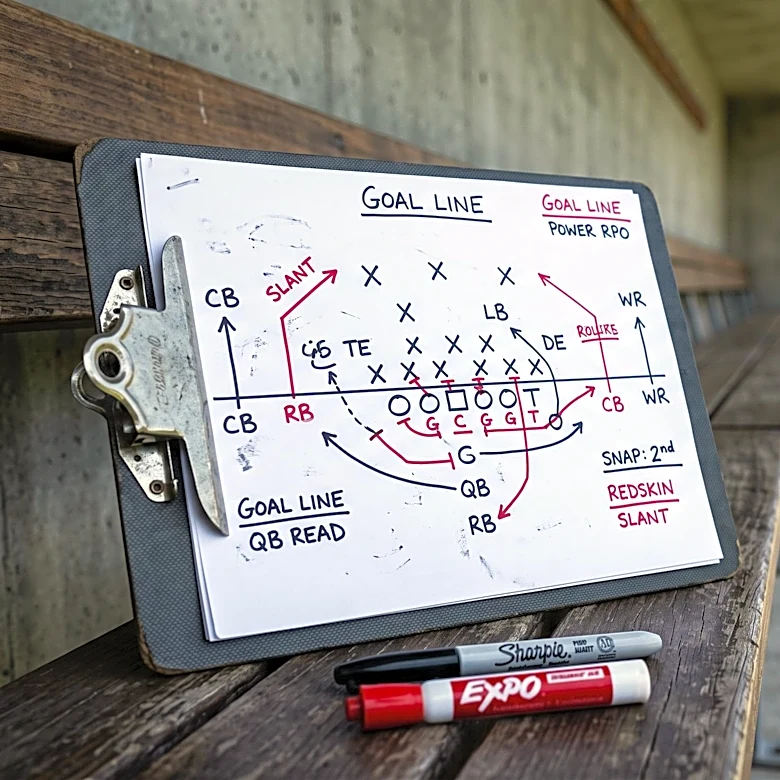 GOAL LINE
GOAL LINE
POWER RPO
SLANT
X X X
CB
WR
X
LB
TE
X X X
DE
X X X X X X
CB
RB
T
CB
WR
G C G G T
G
SNAP: 2nd
QB
REDSKIN
GOAL LINE
RB
SLANT
QB READ
Sharpie.
EXPO